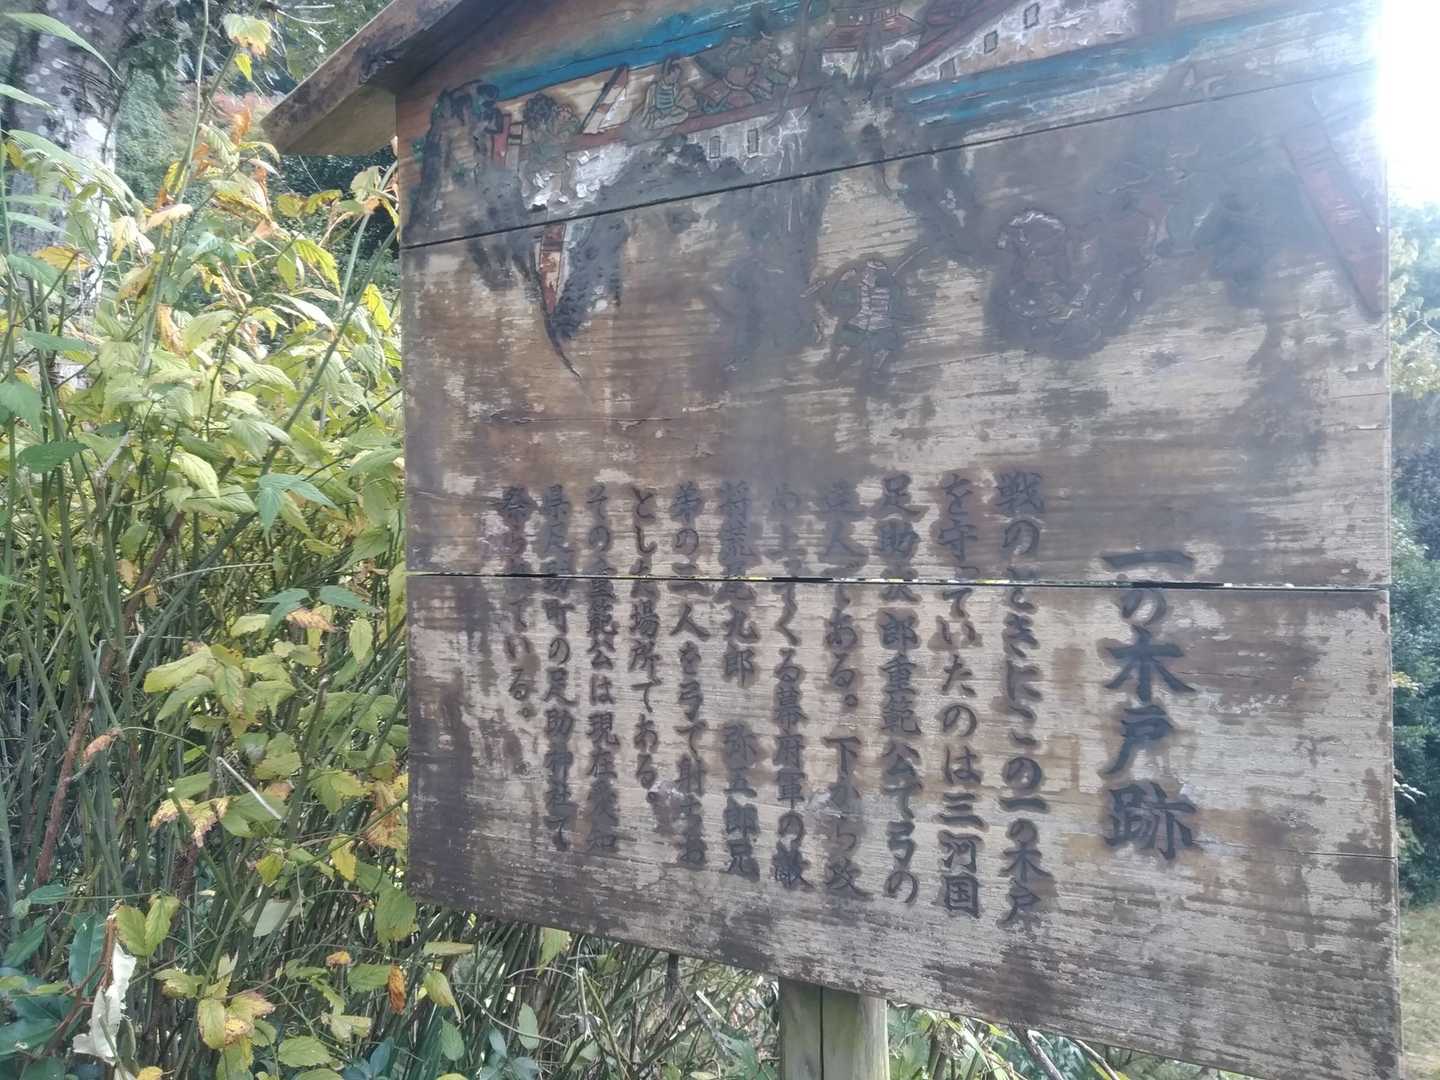 一の木戸跡
戦のときにこの一の木戸
を守っていたのは三河国
足助次郎重範公で弓の
達人である。下から攻
め上ってくる幕府軍の敵
将荒尾九郎 弥五郎兄
弟の二人を弓で射たお
とした場所である。
その重範公は現在愛知
県足助町の足助神社で
祭られている。